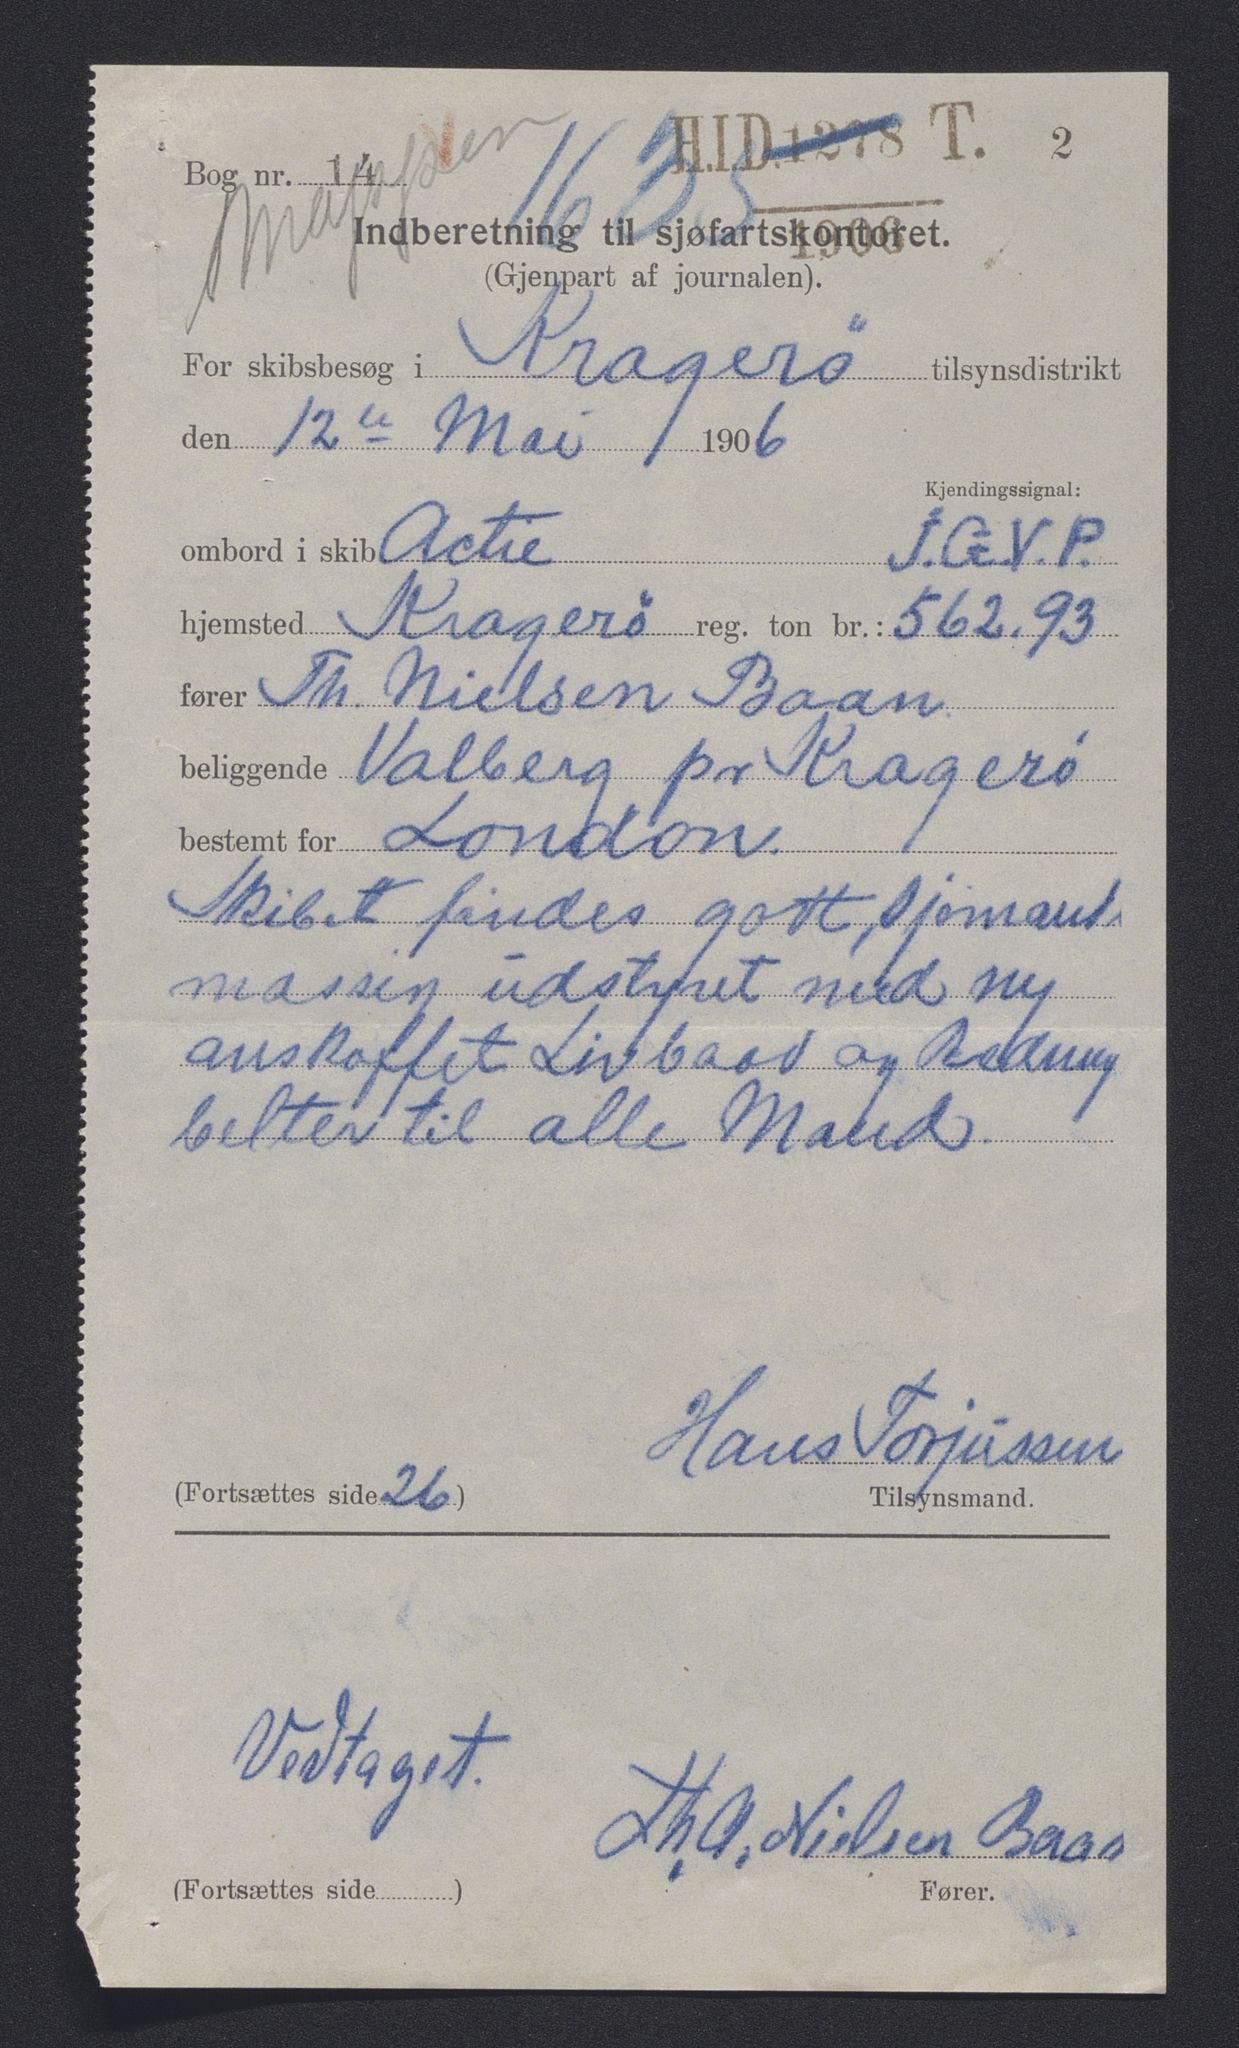 H.I.D. 1278 T. 2
1906
Bog nr. 14
Indberetning til sjøfartskontoret.
(Gjenpart af journalen).
For skibsbesøg i Kragerö tilsynsdistrikt
den 12te Mai 1906
Kjendingssignal:
ombord i skib Actie J.G.V.P.
hjemsted Kragerö reg. ton br.: 562.93
fører Th. Nielsen Baan
beliggende Valberg pr Kragerö
bestemt for London.
Skibet findes gott, sjömands
massig udstyret med ny
anskaffet Livbaad og Redning
belter til alle Mand.
Hans Torjussen
(Fortsættes side 26)
Tilsynsmand.
Vedtaget.
Th. A. Nielsen Baan
(Fortsættes side )
Fører.